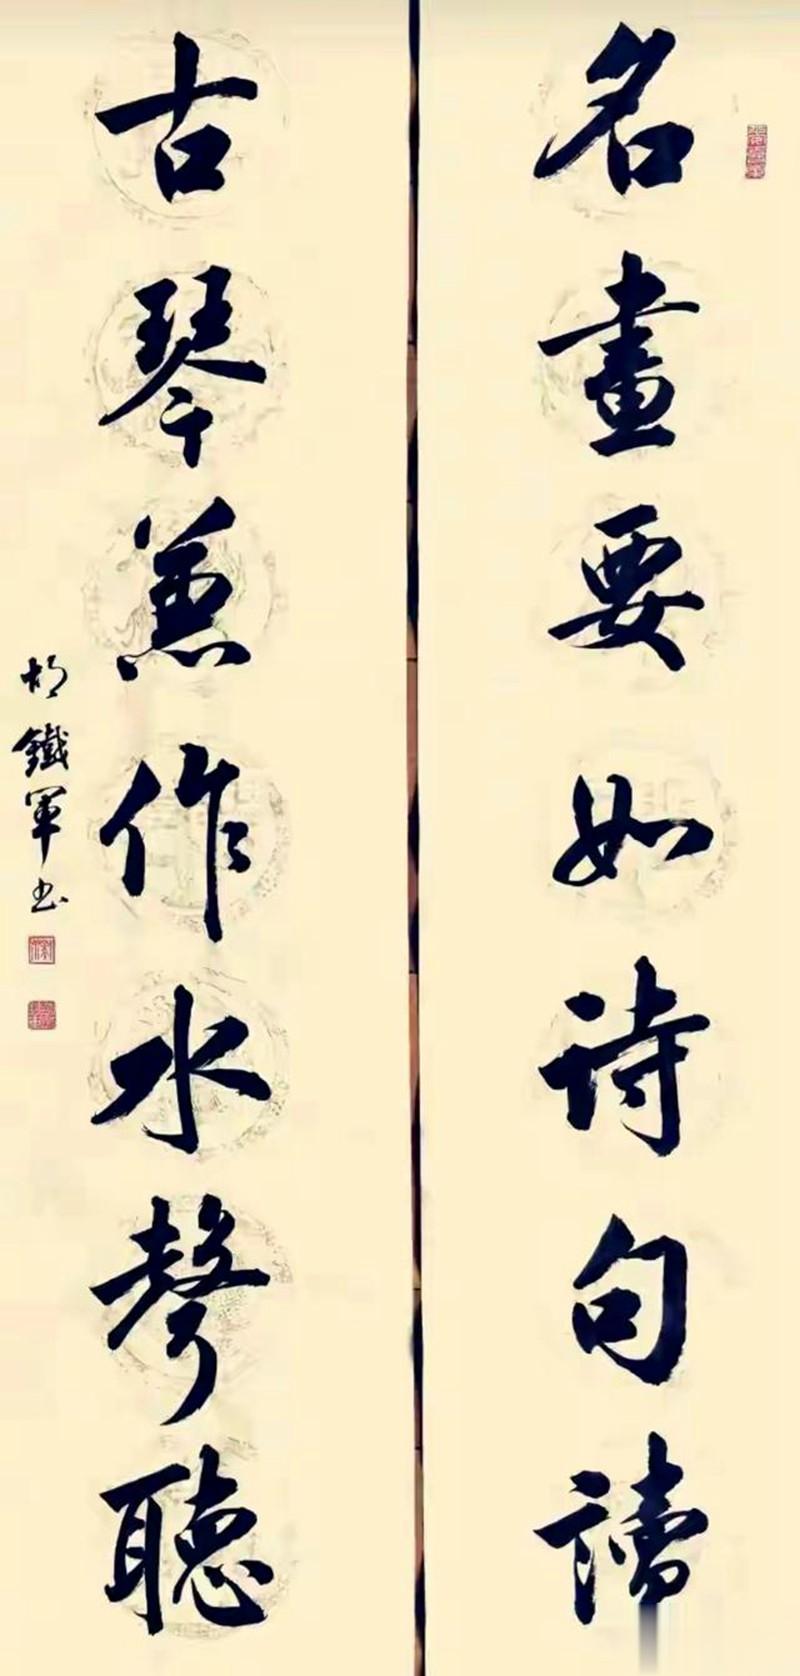 名畫要如詩句讀
古琴兼作水聲聽
胡鐵軍书